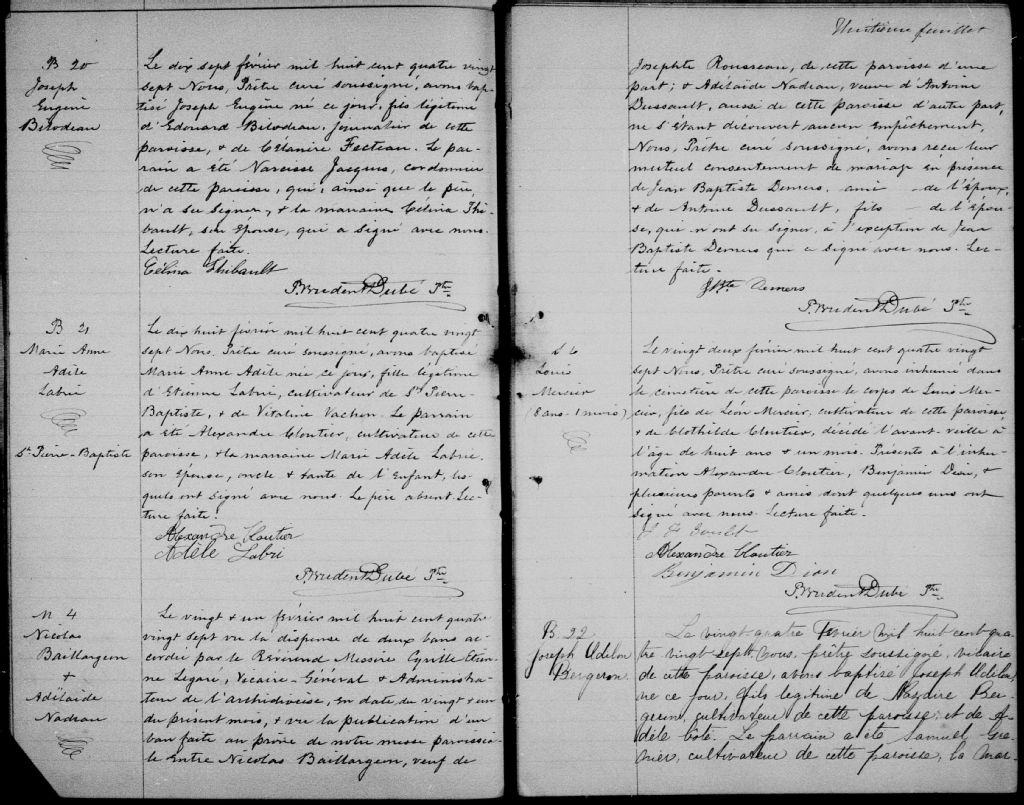 B 20
Joseph
Eugène
Bilodeau
Le dix sept février mil huit cent quatre vingt
sept Nous, Prêtre curé soussigné, avons bap-
tisé Joseph Eugène né ce jour, fils légitime
d'Edouard Bilodeau, journalier de cette
paroisse, & de Célanire Fecteau. Le par-
rain a été Narcisse Jacques, cordonnier
de cette paroisse, qui, ainsi que le père,
n'a su signer, & la marraine Célina Thi-
bault, son épouse, qui a signé avec nous.
Lecture faite.
Célina Thibault
P. Prudent Dubé Ptre.
B 21
Marie Anne
Adèle
Labrie
St Pierre-Baptiste
Le dix huit février mil huit cent quatre vingt
sept Nous, Prêtre curé soussigné, avons baptisé
Marie Anne Adèle née ce jour, fille légitime
d'Etienne Labrie, cultivateur de St Pierre-
Baptiste, & de Vitaline Vachon. Le parrain
a été Alexandre Cloutier, cultivateur de cette
paroisse, & la marraine Marie Adèle Labrie,
son épouse, oncle & tante de l'Enfant, les-
quels ont signé avec nous. Le père absent. Lec-
ture faite.
Alexandre Cloutier
Adèle Labri
P. Prudent Dubé Ptre.
M 4
Nicolas
Baillargeon
+
Adélaïde
Nadeau
Le vingt & un février mil huit cent quatre
vingt sept vu la dispense de deux bans ac-
cordée par le Révérend Messire Cyrille Etien-
ne Légaré, Vicaire-Général & Administra-
teur de l'archidiocèse, en date du vingt & un
du présent mois, & vu la publication d'un
ban faite au prône de notre messe paroissia-
le Entre Nicolas Baillargeon, veuf de
Huitième feuillet
Josephte Rousseau, de cette paroisse d'une
part; & Adélaïde Nadeau, veuve d'Antoine
Dussault, aussi de cette paroisse d'autre part,
ne s'étant découvert aucun empêchement,
Nous, Prêtre curé soussigné, avons reçu leur
mutuel consentement de mariage en présence
de Jean Baptiste Demers, ami de l'époux,
& de Antoine Dussault, fils de l'épou-
se, qui n'ont su signer, à l'exception de Jean
Baptiste Demers qui a signé avec nous. Lec-
ture faite.
J Bte Demers
P. Prudent Dubé Ptre.
S 6
Louis
Mercier
(8 ans 1 mois)
Le vingt deux février mil huit cent quatre vingt
sept Nous, Prêtre curé soussigné, avons inhumé dans
le cimetière de cette paroisse le corps de Louis Mer-
cier, fils de Léon Mercier, cultivateur de cette paroisse
& de Clothilde Cloutier, décédé l'avant-veille à
l'âge de huit ans & un mois. Présents à l'inhu-
mation Alexandre Cloutier, Benjamin Dion, &
plusieurs parents & amis dont quelques uns ont
signé avec nous. Lecture faite.
Alexandre Cloutier
Benjamin Dion
P. Prudent Dubé Ptre
B. 22
Joseph Adelar
Bergeron.
Le vingt quatre Février mil huit cent qua-
tre vingt sept, nous, prêtre soussigné, vicaire
de cette paroisse, avons baptisé Joseph Adelar
né ce jour, fils légitime de Nazaire Ber-
geron, cultivateur de cette paroisse et de A-
dèle Coté. Le parrain a été Samuel Gre-
nier, cultivateur de cette paroisse, la mar-